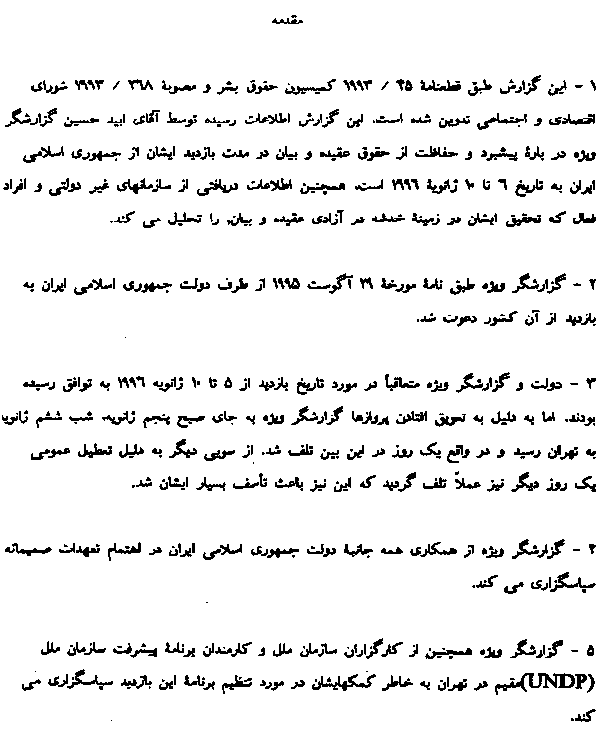 مقدمه
۱ - این گزارش طبق قطعنامهٔ ۴۵ / ۱۹۹۳ کمیسیون حقوق بشر و مصوبهٔ ۲۶۸ / ۱۹۹۳ شورای
اقتصادی و اجتماعی تدوین شده است. این گزارش اطلاعات رسیده توسط آقای ابید حسین گزارشگر
ویژه در بارهٔ پیشبرد و حفاظت از حقوق عقیده و بیان در مدت بازدید ایشان از جمهوری اسلامی
ایران به تاریخ ٦ تا ۱۰ ژانویهٔ ۱۹۹٦ است. همچنین اطلاعات دریافتی از سازمانهای غیر دولتی و افراد
فعال که تحقیق ایشان در زمینهٔ خدشه در آزادی عقیده و بیان، را تحلیل می کند.
۲ - گزارشگر ویژه طبق نامهٔ مورخهٔ ۲۹ آگوست ۱۹۹۵ از طرف دولت جمهوری اسلامی ایران به
بازدید از آن کشور دعوت شد.
۳ - دولت و گزارشگر ویژه متعاقباً در مورد تاریخ بازدید از ۵ تا ۱۰ ژانویه ۱۹۹٦ به توافق رسیده
بودند. اما به دلیل به تعویق افتادن پروازها گزارشگر ویژه به جای صبح پنجم ژانویه، شب ششم ژانویه
به تهران رسید و در واقع یک روز در این بین تلف شد. از سویی دیگر به دلیل تعطیل عمومی
یک روز دیگر نیز عملاً تلف گردید که این نیز باعث تأسف بسیار ایشان شد.
۴ - گزارشگر ویژه از همکاری همه جانبهٔ دولت جمهوری اسلامی ایران در اهتمام تعهدات صمیمانه
سپاسگزاری می کند.
۵ - گزارشگر ویژه همچنین از کارگزاران سازمان ملل و کارمندان برنامهٔ پیشرفت سازمان ملل
(UNDP)مقیم در تهران به خاطر کمکهایشان در مورد تنظیم برنامهٔ این بازدید سپاسگزاری می
کند.